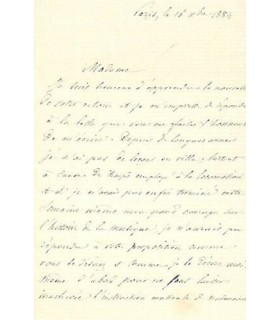 Paris, le 16 xbre 1884
Madame
Je suis heureux d'apprendre la nouvelle
de votre retour et je m'empresse de répondre
à la lettre que vous me faites l'honneur
de m'écrire. Depuis de longues années
je n'ai pas de leçons en ville, surtout
à cause du temps employé à la locomotion
et si je n'avais pas enfin terminé cette
semaine même mon grand ouvrage sur
l'histoire de la musique, je n'aurais pu
répondre à votre proposition comme
vous le désirez et comme je le désire moi
même. D'abord pour ne pas laisser
inachevée l'instruction musicale de